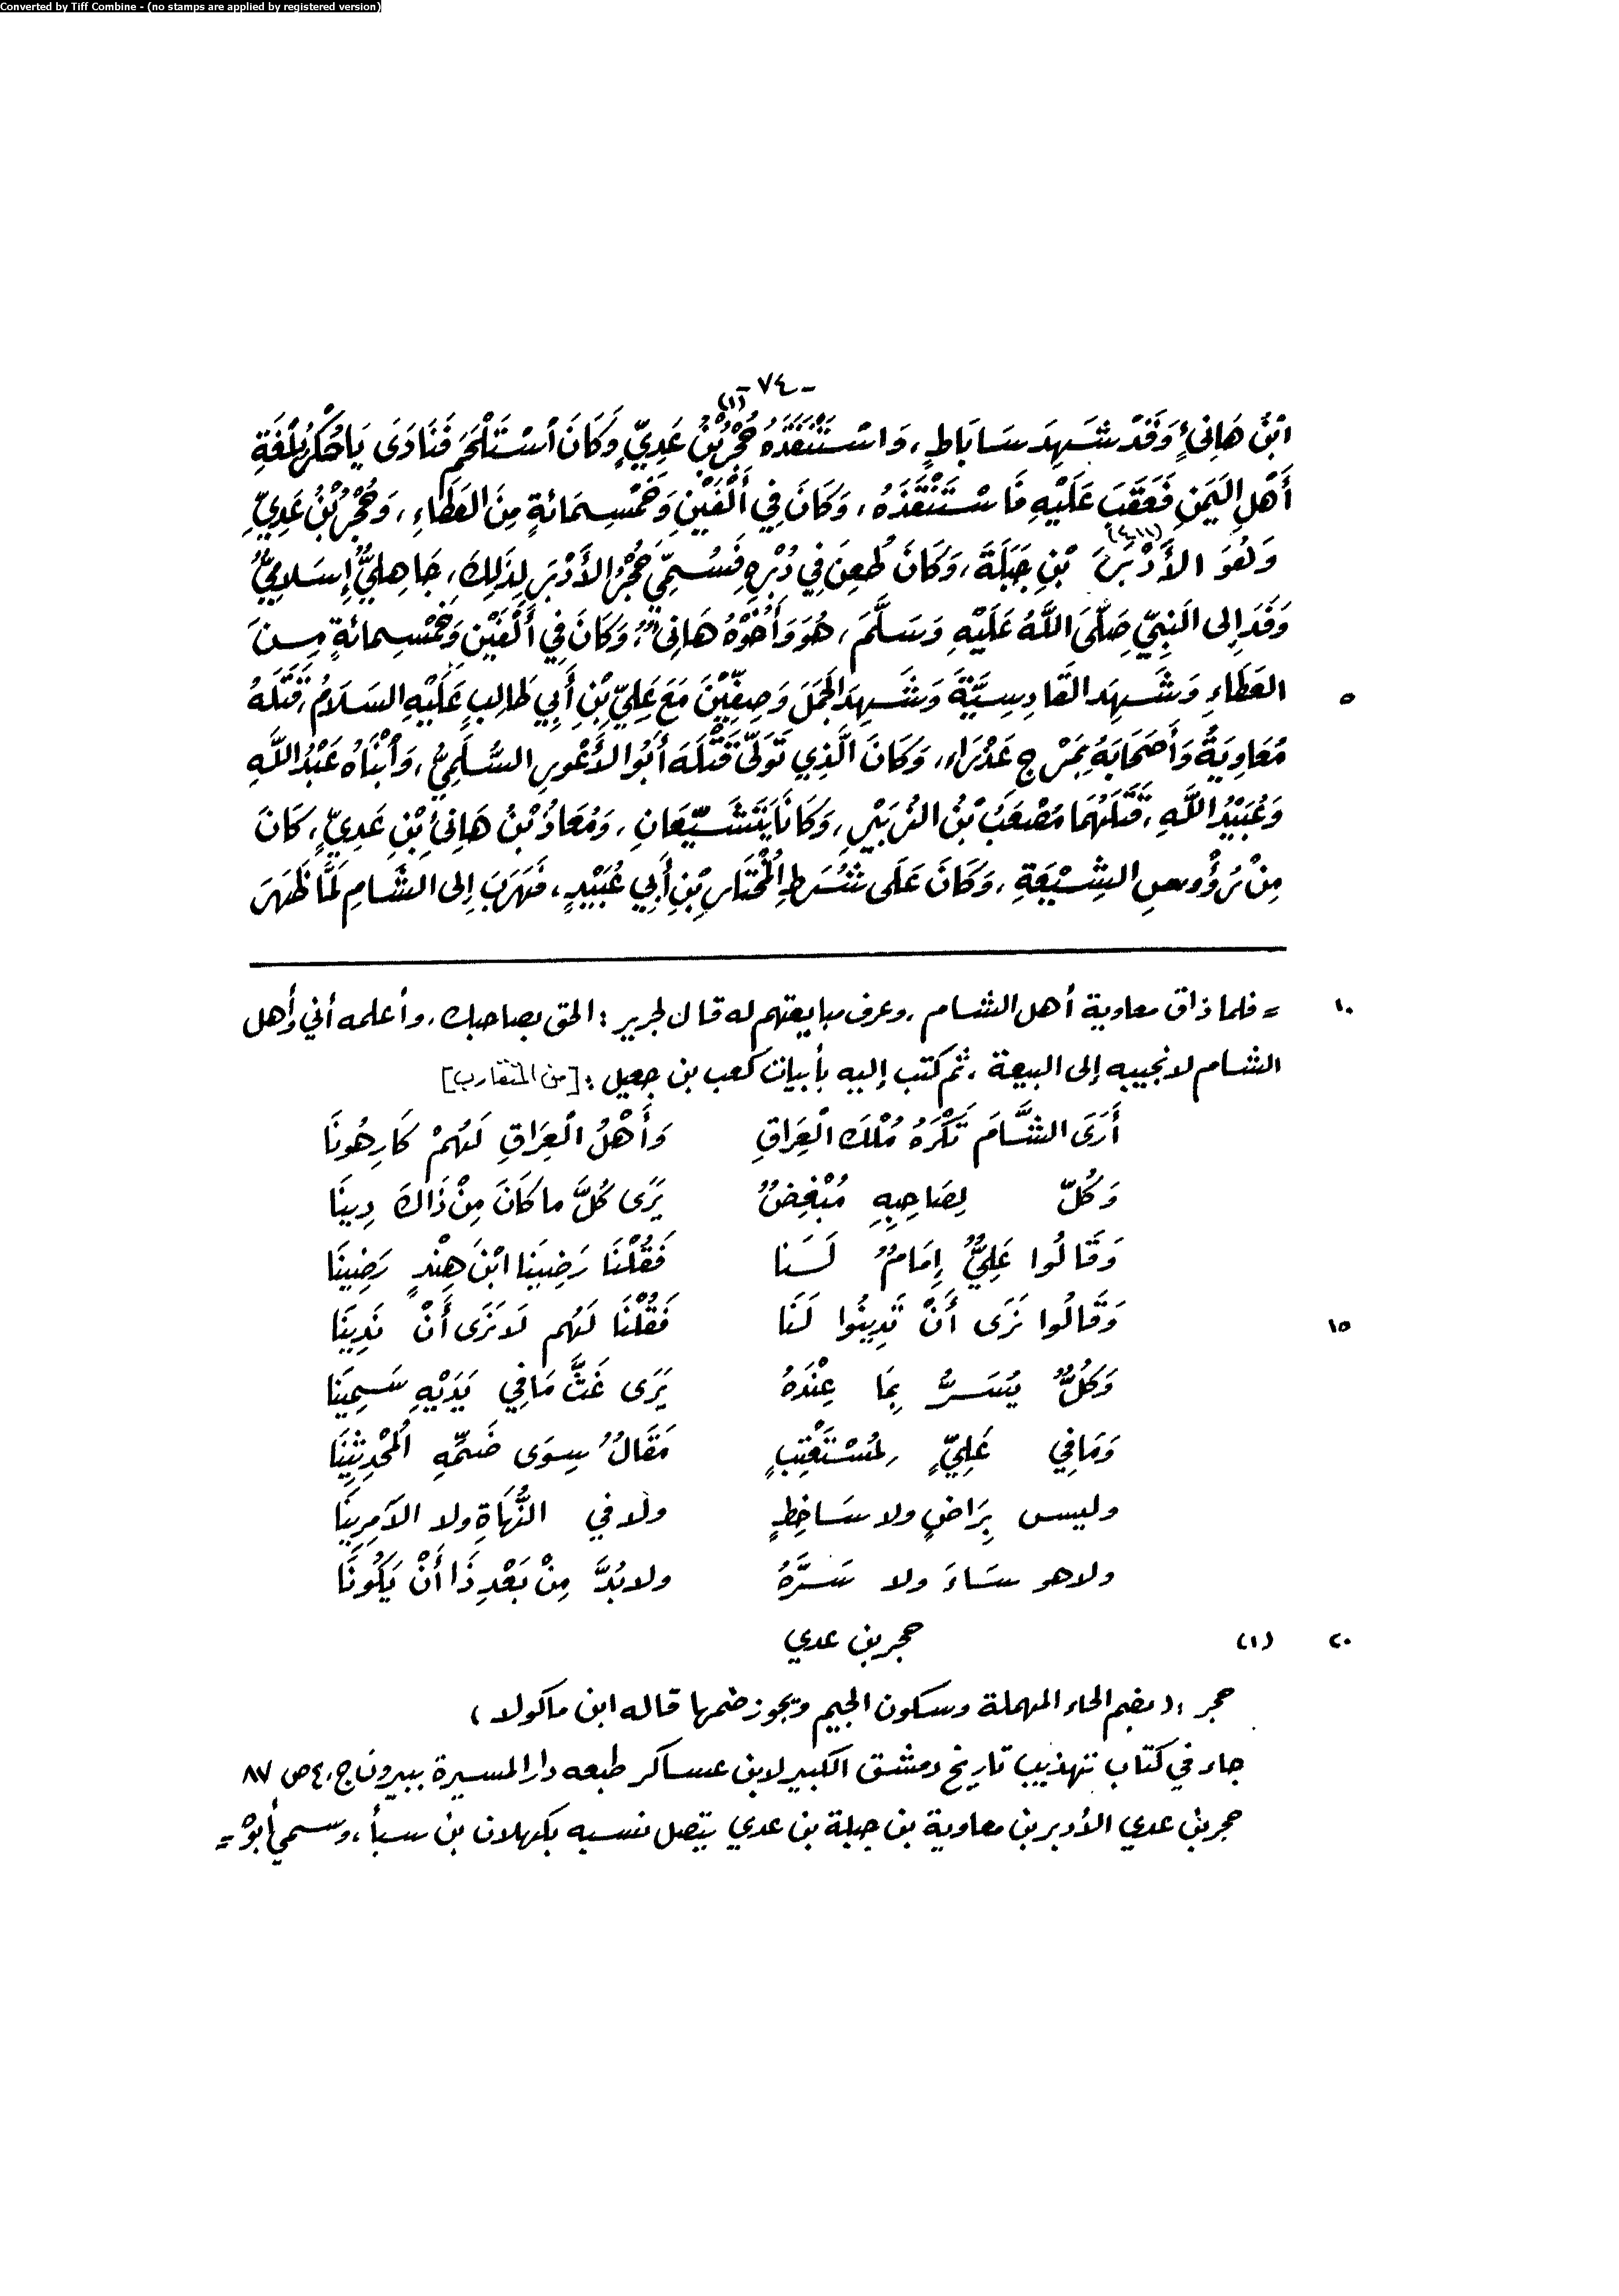 Converted by Tiff Combine - (no stamps are applied by registered version)
- ٧٤ -
ابْنُ هَانِئٍ وَقَدْ شَهِدَ سَابَاطٍ، وَاسْتَنْقَذَهُ حُجْرُ بْنُ عَدِيٍّ (١) وَكَانَ اسْتَلْحَمَ فَنَادَى يَا حُكْرُ بِلُغَةِ
أَهْلِ اليَمَنِ فَعَقَبَ عَلَيْهِ فَاسْتَنْقَذَهُ، وَكَانَ فِي أَلْفَيْنِ وَخَمْسِمَائةٍ مِنَ العَطَاءِ، وَحُجْرُ بْنُ عَدِيِّ
وَهُوَ الأَدْبَرَ (٤١١) بْنِ جَبَلَةَ، وَكَانَ طُعِنَ فِي دُبْرِهِ فَسُمِّيَ حُجْرُ الأَدْبَرَ لِذَلِكَ، جَاهِلِيٌّ إِسْلَامِيٌّ
وَفَدَ إِلى النَبِيِّ صَلَّى اللَّهُ عَلَيْهِ وَسَلَّمَ، هُوَ وَأَخُوْهُ هَانِئٌ، وَكَانَ فِي أَلْفَيْنِ وَخَمْسِمائةٍ مِنَ
العَطَاءِ وَشَهِدَ القَادِسِيَّةَ وَشَهِدَ الجَمَلَ وَصِفِّيْنَ مَعَ عَلِيِّ بْنِ أَبِي طَالِبٍ عَلَيْهِ السَلَامُ، قَتَلَهُ ٥
مُعَاوِيَةُ وَأَصْحَابَهُ بِمَرْجِ عَذْرَاء، وَكَانَ الَّذِي تَوَلَّى قَتْلَهَ أَبُو الأَعْوَرِ السُّلَمِيُّ، وَابْنَاهُ عَبْدُ اللَّهِ
وَعُبَيْدُ اللَّهِ، قَتَلَهُمَا مُصْعَبُ بْنُ الزُبَيْرِ، وَكَانَا يَتَشَيّعَانِ، وَمُعَاذُ بْنُ هَانِئِ بْنِ عَدِيٍّ، كَانَ
مِنْ رُؤُوسِ الشِيْعَةِ، وَكَانَ عَلَى شُرَطِ المُخْتَارِ بْنِ أَبِي عُبَيْدٍ، فَهَرَبَ إِلى الشَامِ لَمَّا ظَهَرَ
= فلما ذاق معاوية أهل الشام، وعرف مبايعتهم له قال لجرير: الحق بصاحبك، وأعلمه أني وأهل ١٠
الشام لا نجيبه إلى البيعة، ثم كتب إليه بأبيات كعب بن جعيل: [من المتقارب]
أَرَى الشَّامَ تَكْرَهُ مُلْكَ العِرَاقِ وَأَهْلُ العِرَاقِ لَهُمْ كَارِهُونَا
وَكُلّ لِصَاحِبِهِ مُبْغِضٌ يَرَى كُلَّ ما كَانَ مِنْ ذَاكَ دِينَا
وَقَالُوا عَلِيٌّ إِمَامٌ لَنَا فَقُلْنَا رَضِيَنا ابْنَ هِنْدٍ رَضِينَا
وَقَالُوا نَرَى أَنْ تَدِينُوا لَنَا فَقُلْنَا لَهُم لَا نَرَى أَنْ نَدِينَا ١٥
وَكُلٌّ يُسَرُّ بِمَا عِنْدَهُ يَرَى غَثَّ مَا فِي يَدَيْهِ سَمِينَا
وَمَا فِي عَلِيٍّ لِمُسْتَعْتِبٍ مَقَالٌ سِوَى ضَمِّهِ المُحْدِثِينَا
وليس بِرَاضٍ ولا سَاخِطٍ ولا في النُّهَاةِ ولا الآمِرِينَا
ولا هو سَاءَ ولا سَرَّهُ ولا بُدَّ مِنْ بَعْدِ ذَا أَنْ يَكُونَا
(١) حجر بن عدي ٢٠
حجر: (بضم الحاء المهملة وسكون الجيم ويجوز ضمها قاله ابن ماكولا)
جاء في كتاب تهذيب تاريخ دمشق الكبير لابن عساكر طبعه دار المسيرة ببيروت ج، ٤ ص ٨٧
حجر بن عدي الأدبر بن معاوية بن جبلة بن عدي يتصل نسبه بكهلان بن سبأ، وسمي أبوه =